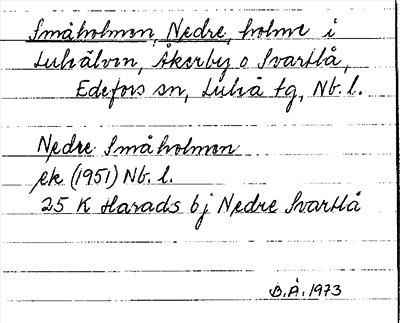 Småholmen, Nedre, holme i
Luleälven, Åkerby o Svartlå,
Edefors sn, Luleå tg, Nb. l.
Nedre Småholmen
ek (1951) Nb. l.
25 K Harads 6j Nedre Svartlå
B.Å. 1973